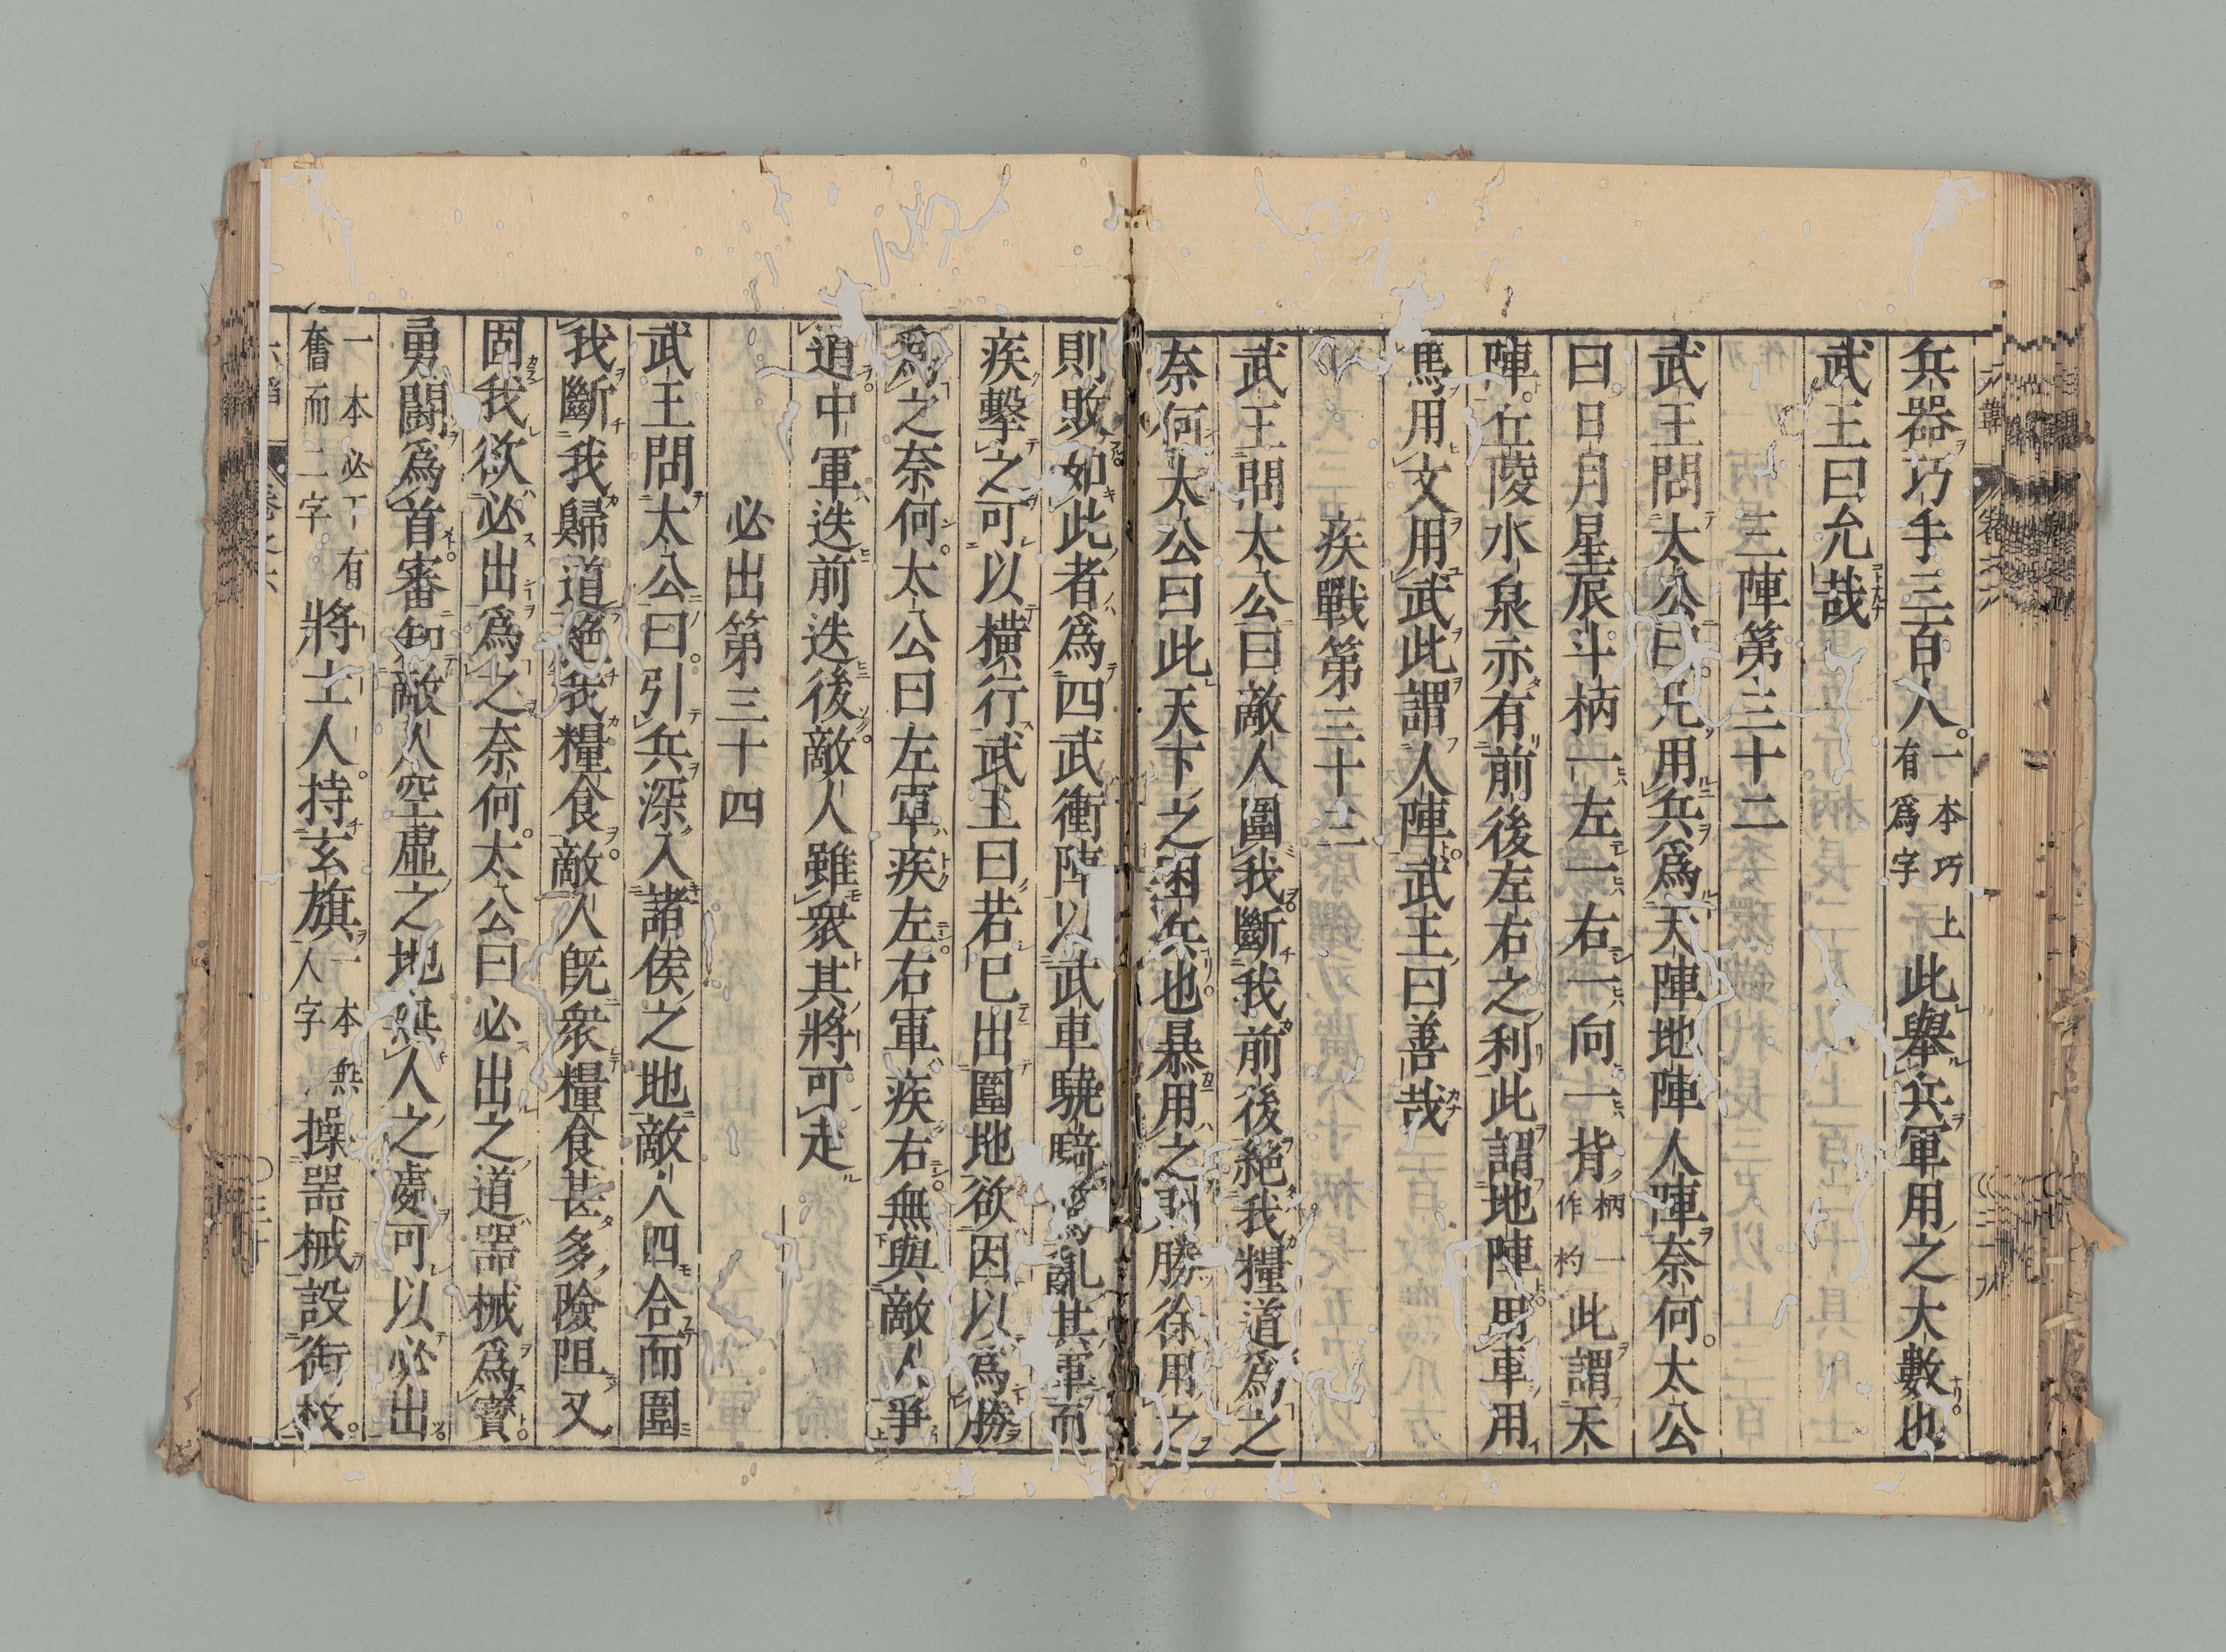 兵器巧手三百人一本巧上有爲字此舉兵軍用之大數也
武王曰允哉
三陣第三十二
武王問太公曰凡用兵爲天陣地陣人陣奈何太公
曰日月星辰斗柄一左一右一向一背柄一作杓此謂天
陣丘陵水泉亦有前後左右之利此謂地陣用車用
馬用文用武此謂人陣武王曰善哉
疾戰第三十三
武王問太公曰敵人圍我斷我前後絶我糧道爲之
奈何太公曰此天下之困兵也暴用之則勝徐用之
則敗如此者爲四武衝陣以武車驍騎驚亂其軍而
疾擊之可以橫行武王曰若已出圍地欲因以爲勝
爲之奈何太公曰左軍疾左右軍疾右無與敵人爭
道中軍迭前迭後敵人雖衆其將可走
必出第三十四
武王問太公曰引兵深入諸侯之地敵人四合而圍
我斷我歸道絶我糧食敵人既衆糧食甚多險阻又
固我欲必出爲之奈何太公曰必出之道器械爲寶
勇鬪爲首審知敵人空虛之地無人之處可以必出
一本必下有奮而二字將士人持玄旗一本無人字操器械設銜枚